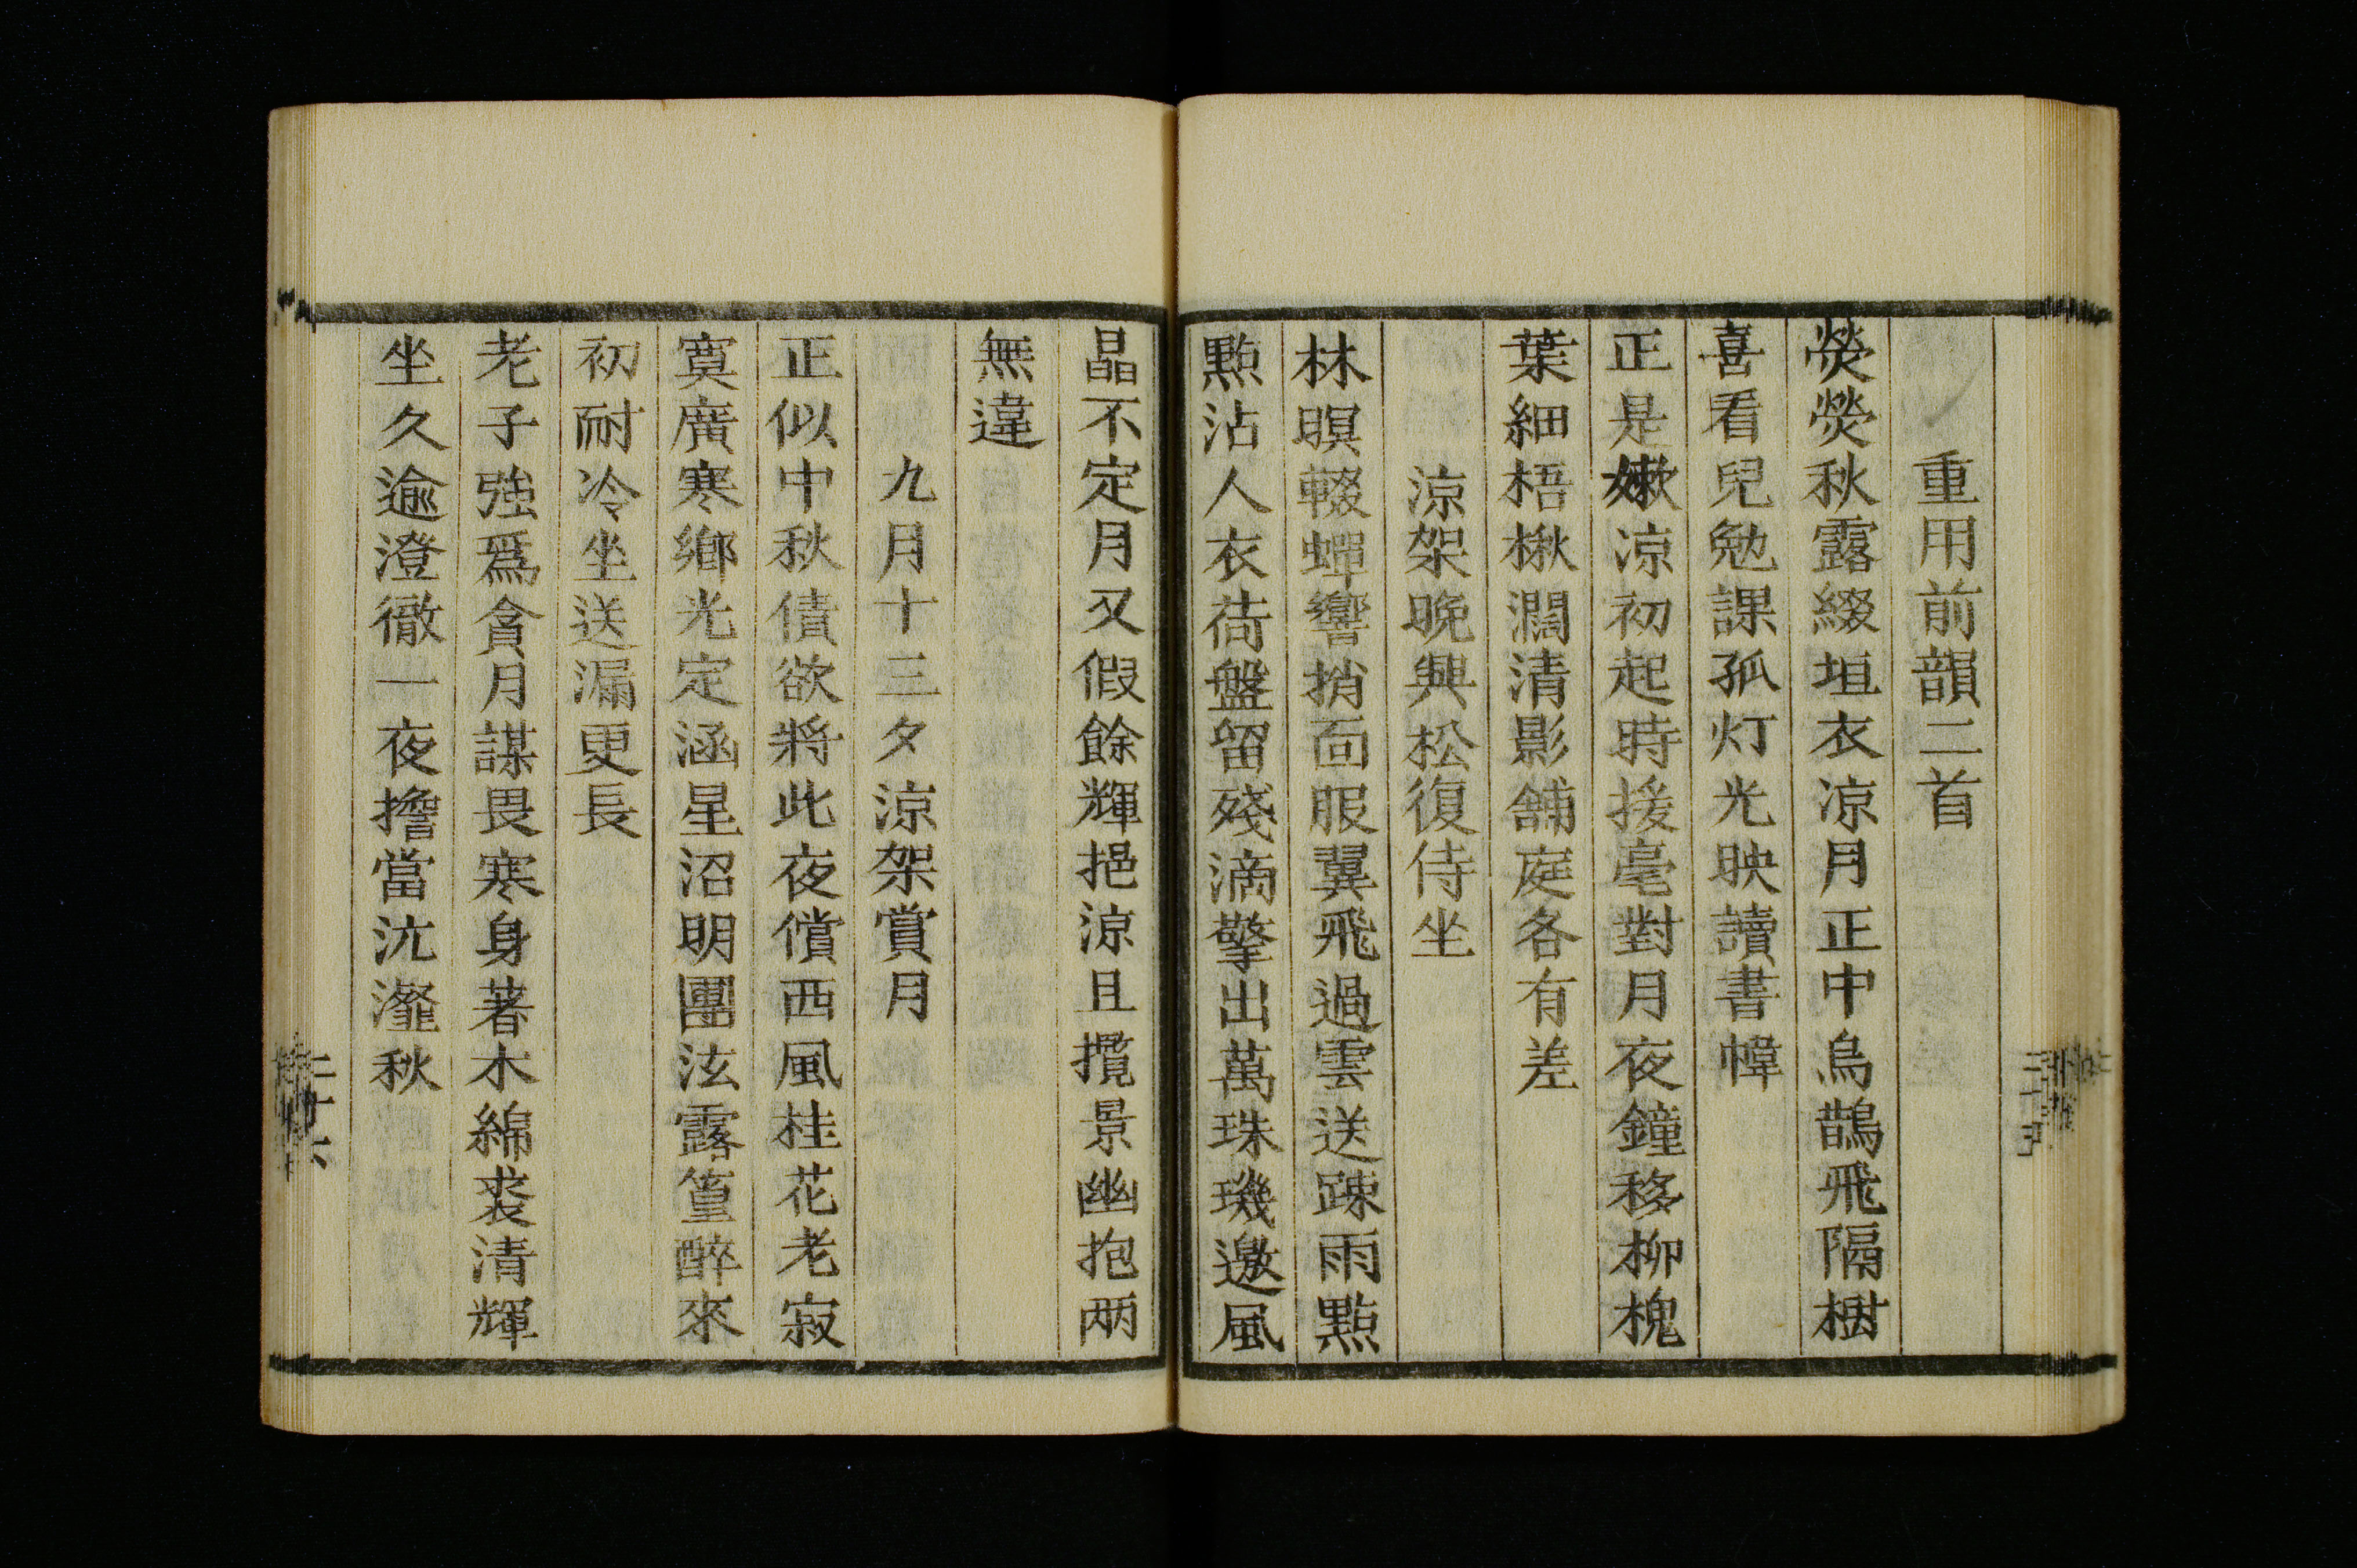 重用前韻二首
熒熒秋露綴垣衣凉月正中烏鵲飛隔樹
喜看兒勉課孤灯光映讀書幃
正是嫩凉初起時援毫對月夜鐘移柳槐
葉細梧楸濶清影舖庭各有差
涼架晚興松復侍坐
林暝輟蟬響捎面服翼飛過雲送踈雨點
點沾人衣荷盤留殘滴擎出萬珠璣邀風
晶不定月又假餘輝挹涼且攬景幽抱两
無違
九月十三夕涼架賞月
正似中秋債欲將此夜償西風桂花老寂
寞廣寒鄉光定涵星沼明團泫露篁醉來
初耐冷坐送漏更長
老子強爲貪月謀畏寒身著木綿裘清輝
坐久逾澄徹一夜擔當沆瀣秋
二十六